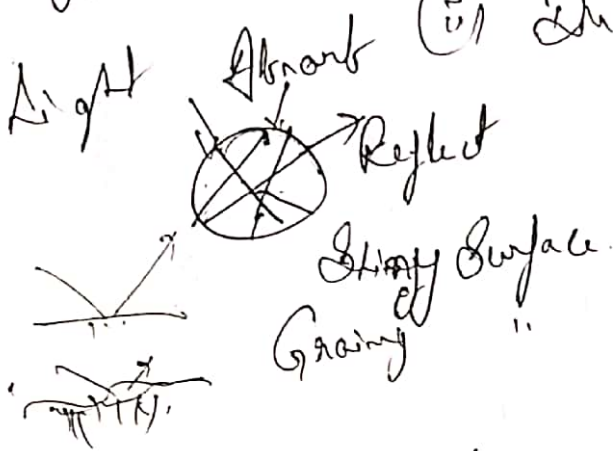 Light Absorb (ii)
Reflect
Shiny Surface.
Grainy "